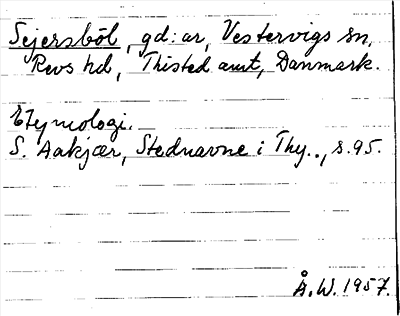 Sejersböl, gd:ar, Vestervigs sn,
Revs hd, Thisted amt, Danmark.
Etymologi.
S. Aakjær, Stednavne i Thy.., s.95.
Å.W. 1957.